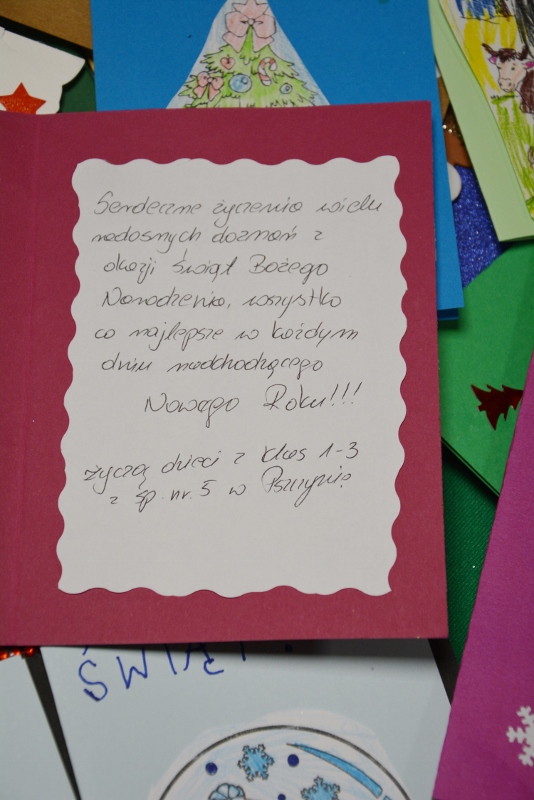 Serdeczne życzenia wielu
radosnych doznań z
okazji Świąt Bożego
Narodzenia, wszystko
co najlepsze w każdym
dniu nadchodzącego
Nowego Roku!!!
życzą dzieci z klas 1-3
z sp. nr. 5 w Pszczynie
ŚWIĄT